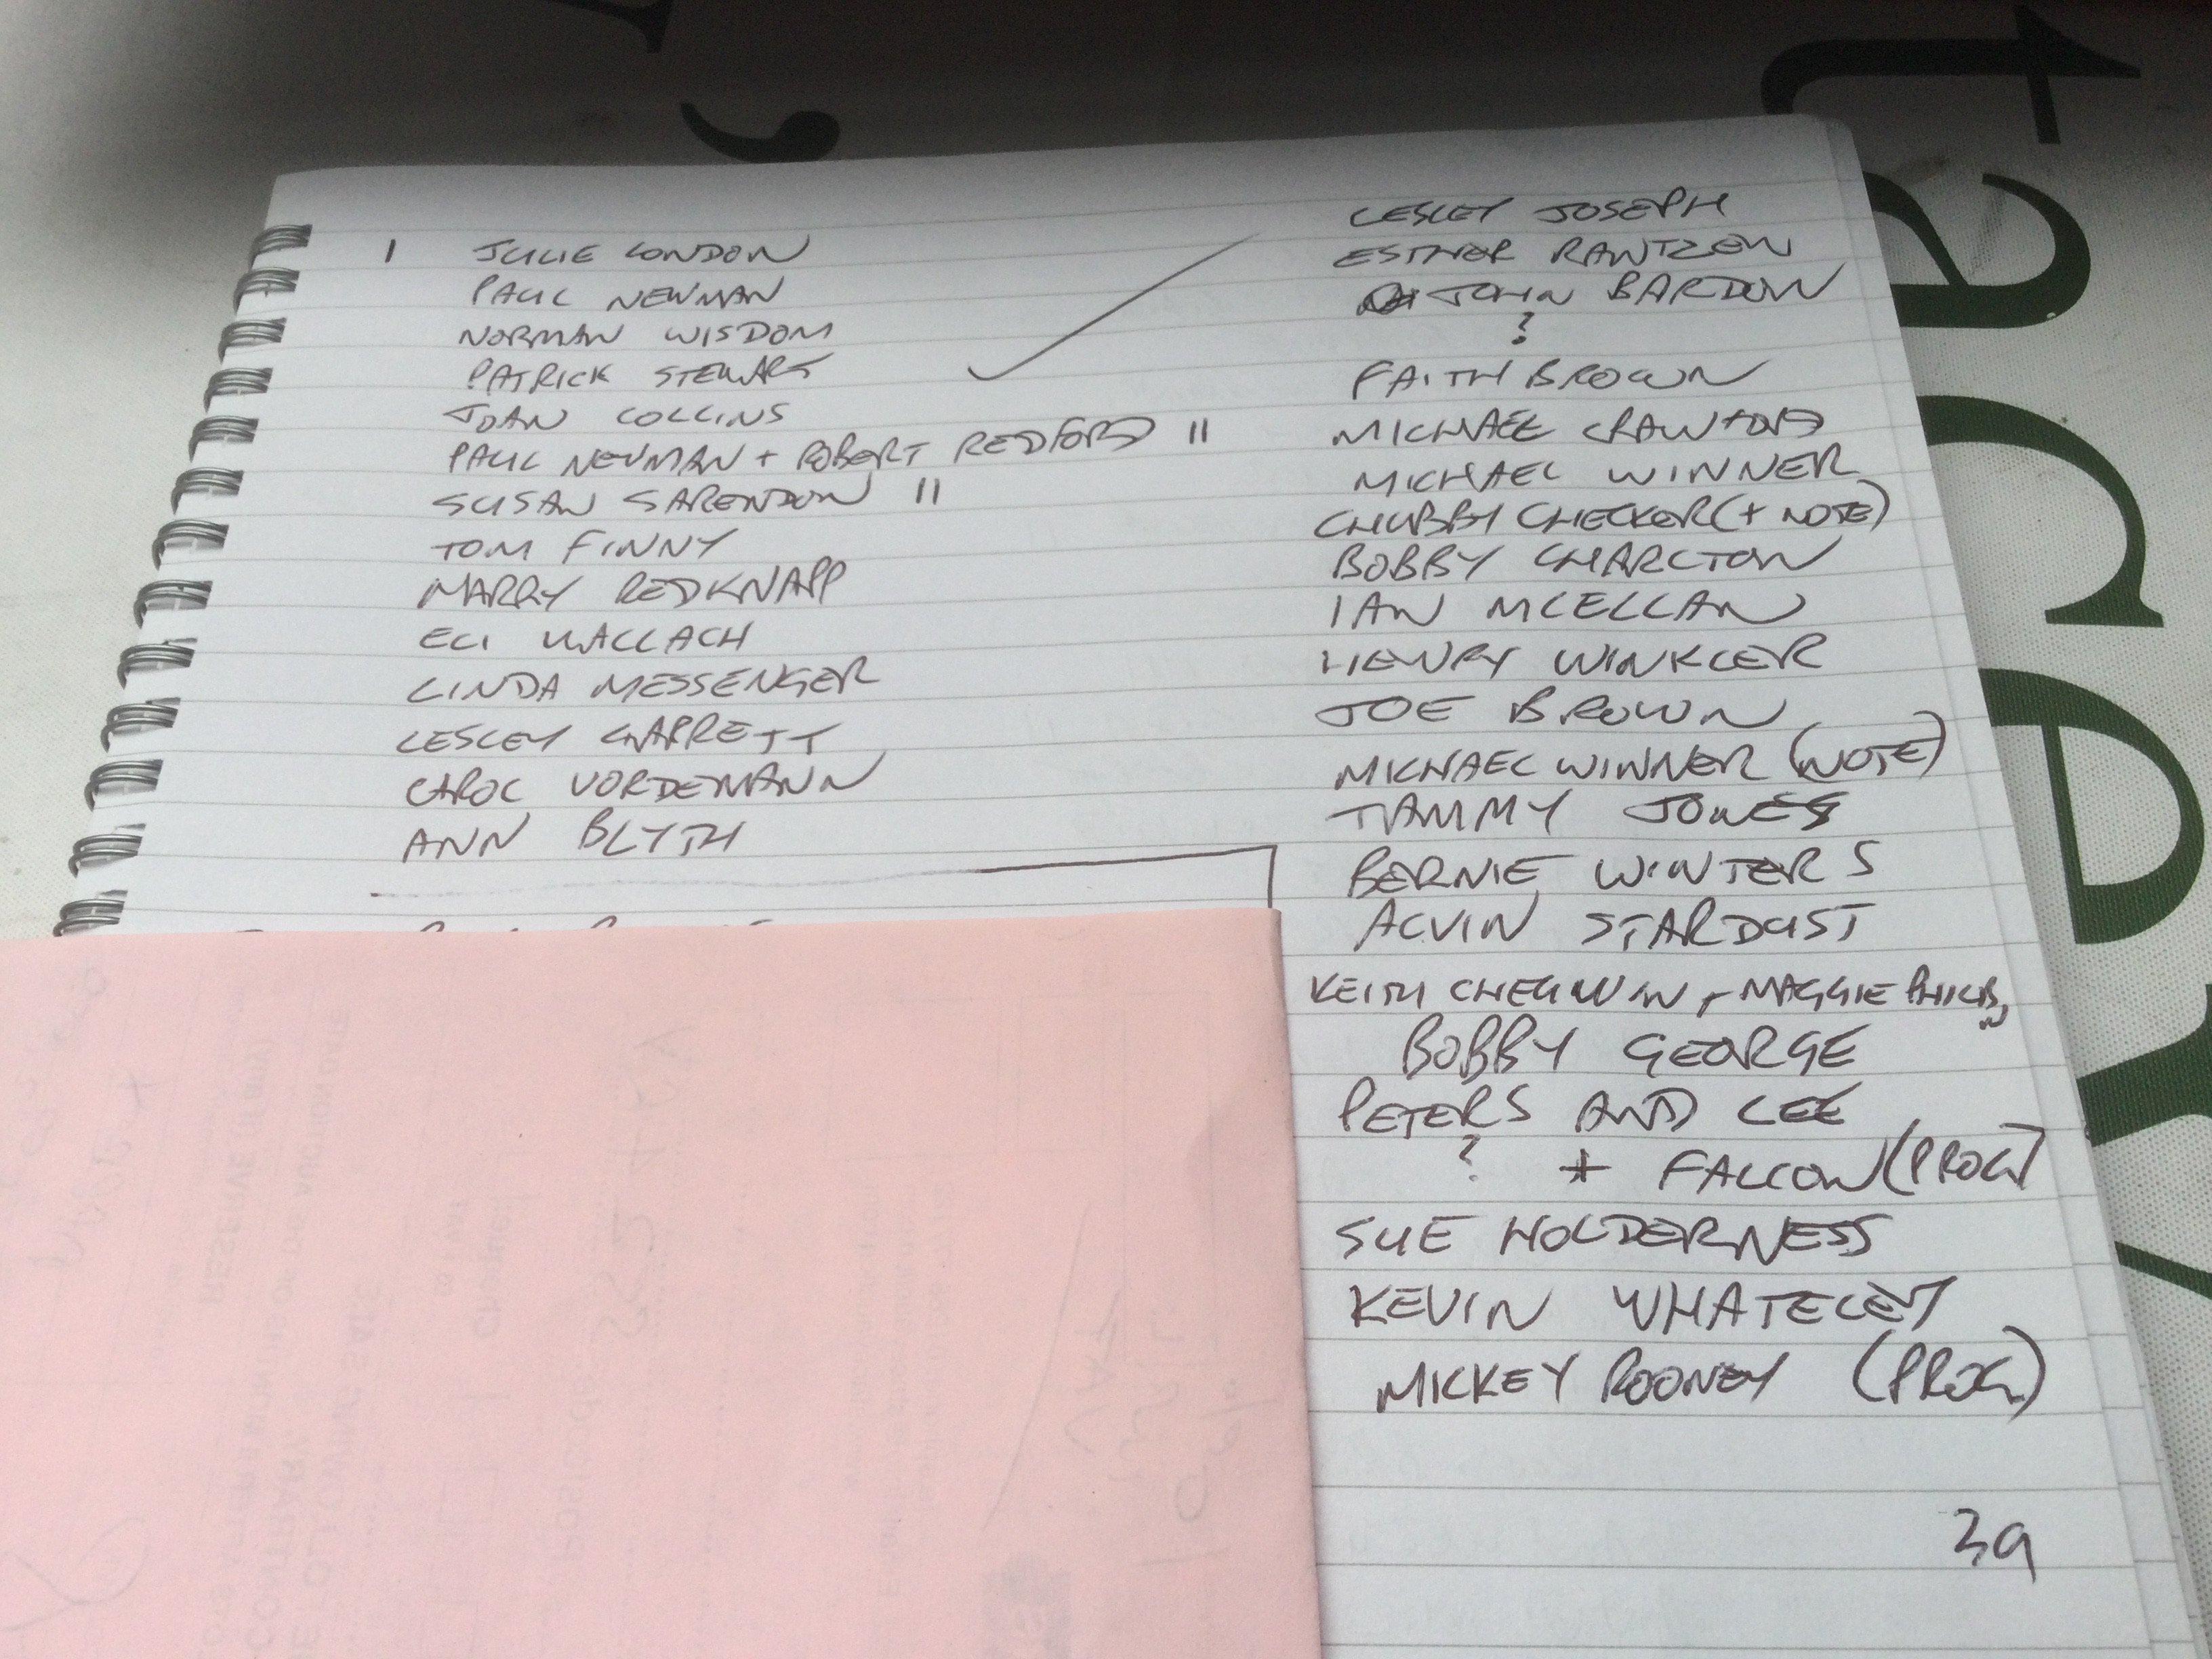 1 JULIE LONDON
PAUL NEWMAN
NORMAN WISDOM
PATRICK STEWART
JOAN COLLINS
PAUL NEWMAN + ROBERT REDFORD 11
SUSAN SARENDON 11
TOM FINNY
HARRY REDKNAPP
ELI WALLACH
LINDA MESSENGER
LESLEY GARRETT
CAROL VORDEMANN
ANN BLYTH
LESLEY JOSEPH
ESTHER RANTZEN
JOHN BARDON
?
FAITH BROWN
MICHAEL CRAWFORD
MICHAEL WINNER
CHUBBY CHECKER (+ NOTE)
BOBBY CHARLTON
IAN MCELLAN
HENRY WINKLER
JOE BROWN
MICHAEL WINNER (NOTE)
TAMMY JONES
BERNIE WINTERS
ALVIN STARDUST
KEITH CHEGWIN + MAGGIE PHILBIN
BOBBY GEORGE
PETERS AND LEE
? + FALCON (PROG)
SUE HOLDERNESS
KEVIN WHATELEY
MICKEY ROONEY (PROG)
39